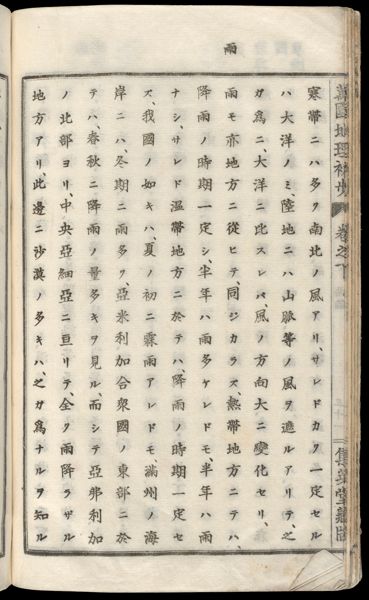 雨
寒帶ニハ多ク南北ノ風アリ、サレドカク一定セル
ハ大洋ノミ、陸地ニハ山脈等ノ風ヲ遮ルアリテ、之
ガ爲ニ、大洋ニ比スレバ、風ノ方向大ニ變化セリ、
雨モ亦地方ニ從ヒテ、同ジカラズ、熱帶地方ニテハ、
降雨ノ時期一定シ、半年ハ雨多ケレドモ、半年ハ雨
ナシ、サレド温帶地方ニ於テハ、降雨ノ時期一定セ
ズ、我國ノ如キハ、夏ノ初ニ霖雨アレドモ、滿州ノ海
岸ニハ、冬期ニ雨多ク、亞米利加合衆國ノ東部ニ於
テハ、春秋ニ降雨ノ量多キヲ見ル、而シテ亞弗利加
ノ北部ヨリ、中央亞細亞ニ亘リテ、全ク雨降ラザル
地方アリ、此邊ニ沙漠ノ多キハ、之ガ爲ナルヲ知ル
萬國地理初步 卷之下
集英堂藏版